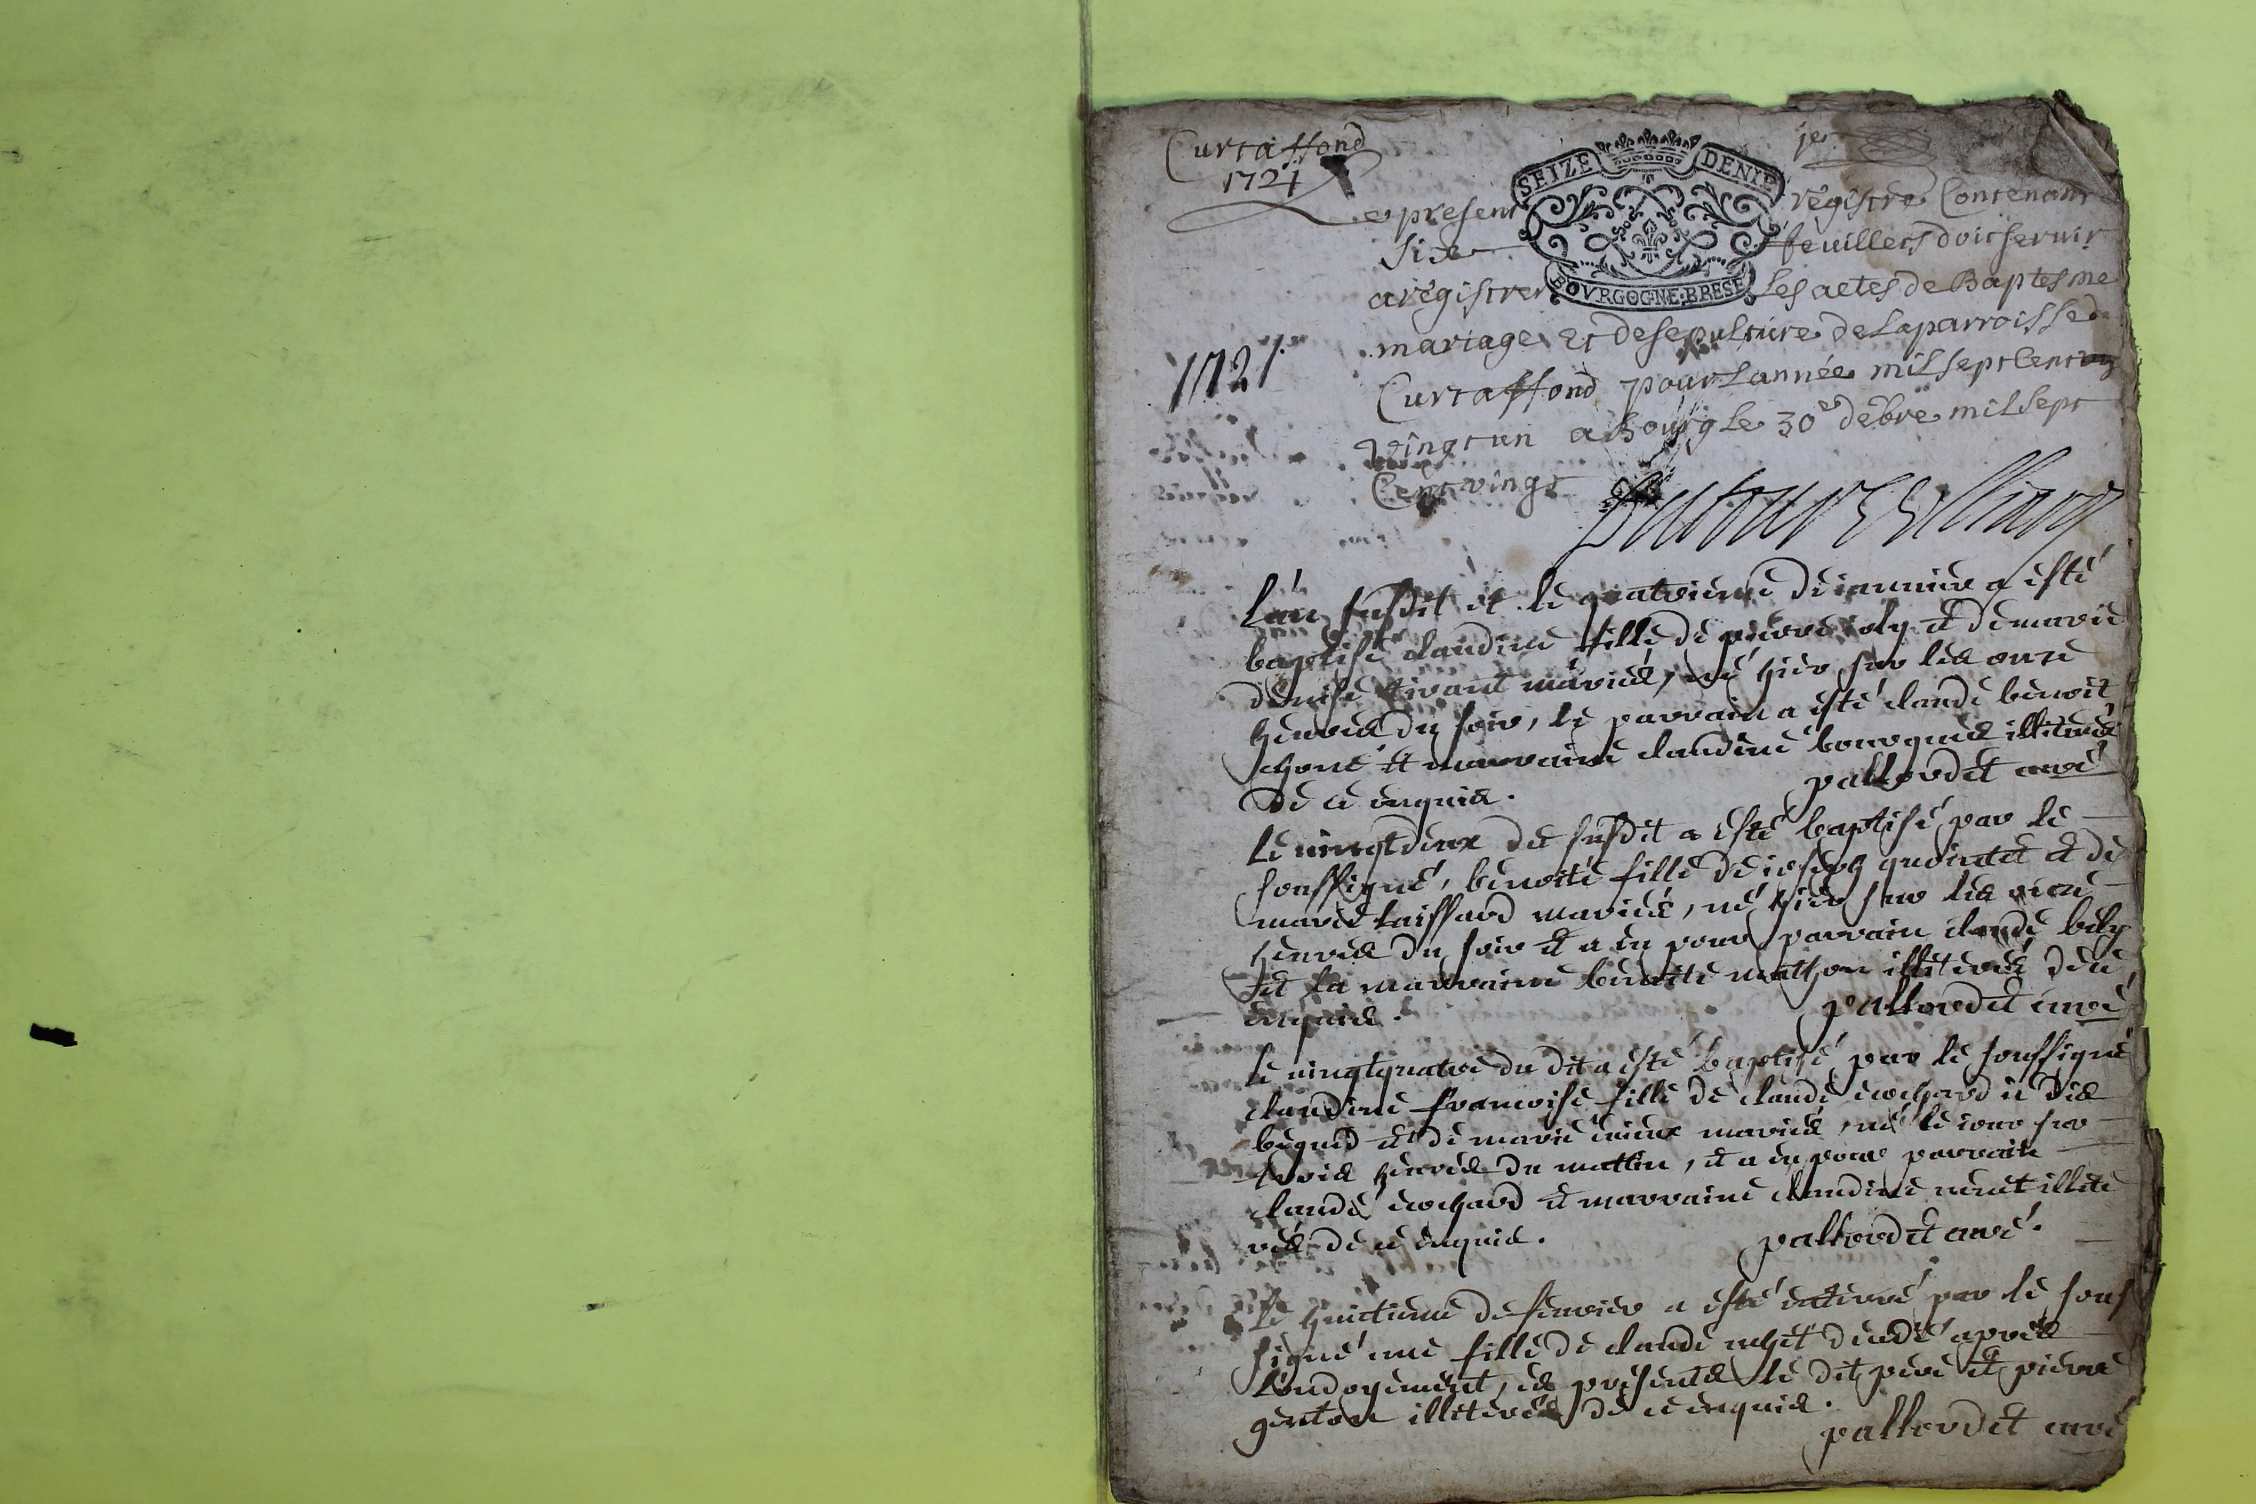 Curtaffond
1721
1er
SEIZE DENIE
BOVRGOGNE·BRESE
Le present registre Contenant
Six feuillets doit servir
a régistrer Les actes de Baptesme
mariage Et de sepulture de La parroisse de
1721
Curtaffond pour Lannée mil sept Cent
vingt un a Bourg Le 30e debre mil sept
Cent vingt
L'an susdit et le quatrieme de ianuier a esté
baptisé claudine fille de pierre ioly et de marie
denise viuant mariés, né hier sur les onze
heures du soir, le parrain a esté claude benoit
et marraine claudine bourgues illiterés
de ce enquis. pallordet curé
Le vingt deux du susdit a esté baptisé par le
soussigné, benoite fille de ioseph et de
marie mariés, né hier sur les onze
heures du soir et a eu pour parrain claude bely
et la marraine benoite mathon illiterés de ce
enquis. pallordet curé
le vingt quatre du dit a esté baptisé par le soussigné
claudine francoise fille de claude ecochard
et de marie mariés, né le iour sur
trois heures du mattin, et a eu pour parrain
claude ecochard et marraine claudine illite
rés de ce enquis. pallordet curé.
Le huictieme de feurier a esté enterré par le sous
signé une fille de claude decedé après
l'ondoyement, és présents le dit père et pierre
genton illiterés de ce enquis.
pallordet curé